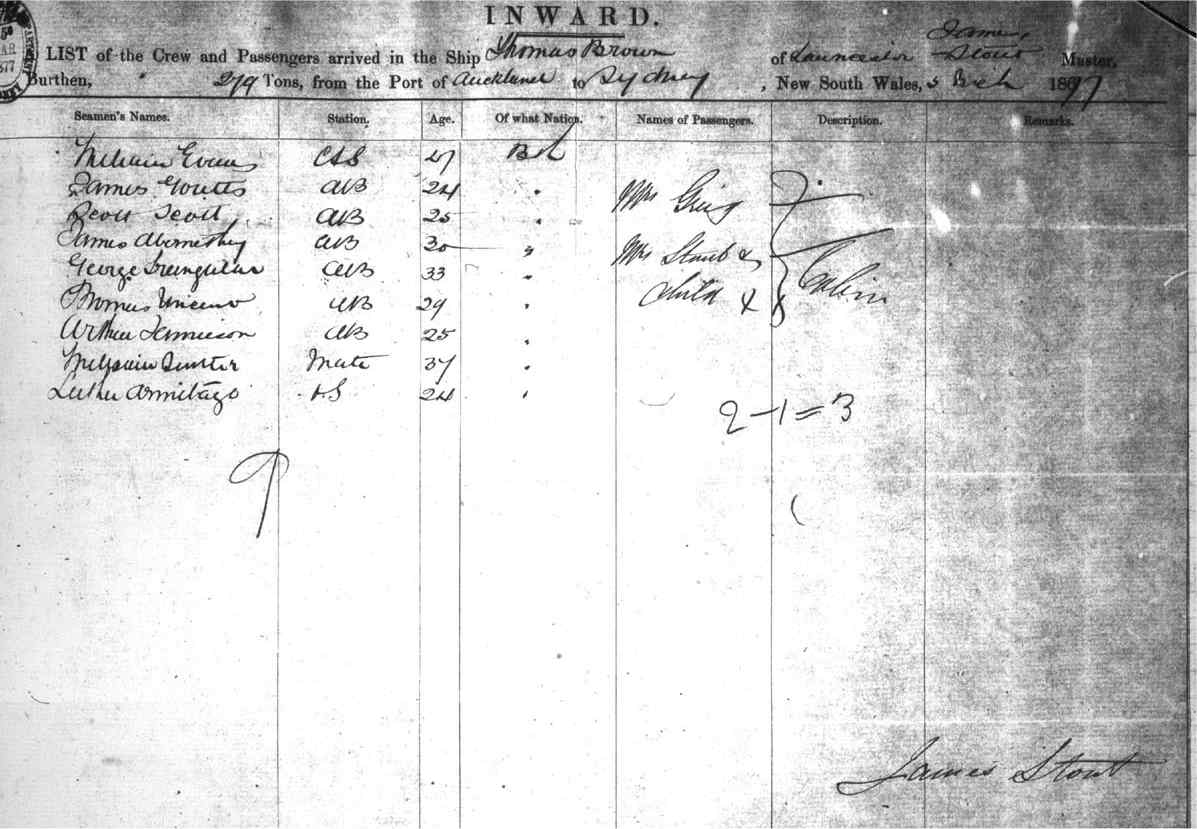 INWARD.
LIST of the Crew and Passengers arrived in the Ship Thomas Brown of Launceston James Stout Master,
Burthen, 279 Tons, from the Port of Auckland to Sydney, New South Wales, 5 1877
Seamen's Names. Station. Age. Of what Nation. Names of Passengers. Description. Remarks.
William Evans 27
James Coutts AB 24 "
Scott AB 25 "
James Abernethy AB 30 "
George AB 33 "
Thomas Vincent AB 29 "
Arthur Jamieson AB 25 "
William Mate 37 "
Luther Armitage 24 "
Mrs
Mrs Stout &
Child Cabin
2-1=3
James Stout